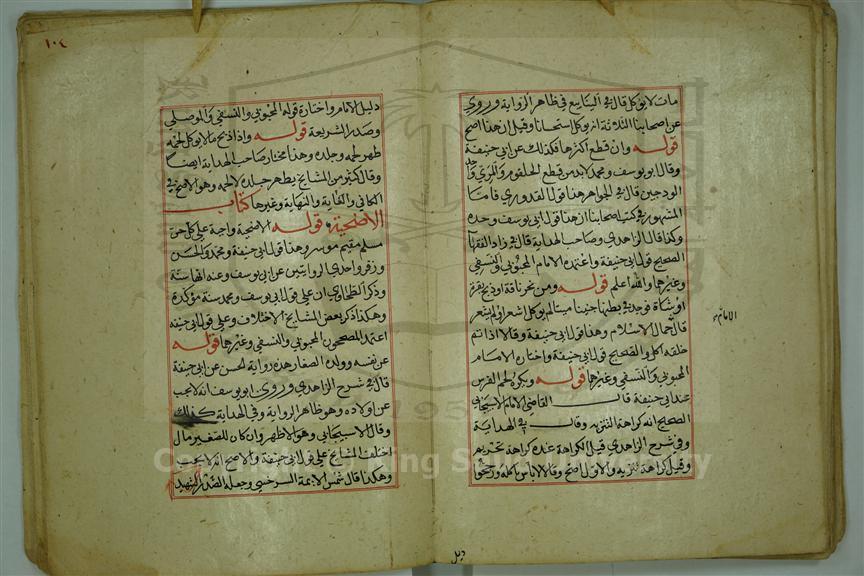 مات لا يؤكل قال في الينابيع في ظاهر الرواية وروي
عن اصحابنا الثلاثة انه يوكل استحسانا وقيل ان هذا اصح
قوله وان قطع اكثرها فكذلك عن ابي حنيفة
وقال ابو يوسف ومحمد لا بد من قطع الحلقوم والمري واحد
الودجين قال في الجواهر هذا قول القدوري فاما
المشهور في كتب اصحابنا ان هذا قول ابي يوسف وحده
وكذا قال الزاهدي وصاحب الهداية قال في زاد الفقهاء
الصحيح قول ابي حنيفة واعتمده الامام المحبوبي والنسفي
وغيرهما والله اعلم قوله ومن نحر ناقة او ذبح بقرة
او شاة فوجد في بطنها جنينا ميتا لم يوكل اشعر او لم يشعر
قال جمال الاسلام وهذا قول ابي حنيفة وقالا اذا تم
خلقه اكل والصحيح قول ابي حنيفة واختاره الامام
المحبوبي والنسفي وغيرهما قوله ويكره لحم الفرس
عند ابي حنيفة قال القاضي الامام الاسبيجابي
الصحيح انه كراهة التنزيه وقال في الهداية
وفي شرح الزاهدي قيل الكراهة عنده كراهة تحريم
وقيل كراهة تنزيه والاول اصح وقالا لا باس باكله ورجحوا
الامام
دليل
١٠٤
دليل الامام واختاره قوله المحبوبي والنسفي والموصلي
وصدر الشريعة قوله واذا ذبح ما لا يوكل لحمه
طهر لحمه وجلده وهذا مختار صاحب الهداية ايضا
وقال كثير من المشايخ يطهر جلده لا لحمه وهو الاصح في
الكافي والغاية والنهاية وغيرها كتاب
الاضحية قوله الاضحية واجبة على كل حر
مسلم مقيم موسر وهذا قول ابي حنيفة ومحمد والحسن
وزفر واحدى الروايتين عن ابي يوسف وعنه انها سنة
وذكر الطحاوي ان على قول ابي يوسف ومحمد سنة مؤكدة
وهكذا ذكر بعض المشايخ الاختلاف وعلى قول ابي حنيفة
اعتمد المصححون المحبوبي والنسفي وغيرهما قوله
عن نفسه وولده الصغار هذه رواية الحسن عن ابي حنيفة
قال في شرح الزاهدي وروى ابو يوسف انه لا يجب
عن اولاده وهو ظاهر الرواية وفي الهداية كذلك
وقال الاسبيجابي وهو الاظهر وان كان للصغير مال
اختلف المشايخ على قول ابي حنيفة والاصح انه لا يجب
وهكذا قال شمس الايمة السرخسي وجعله الصدر الشهيد